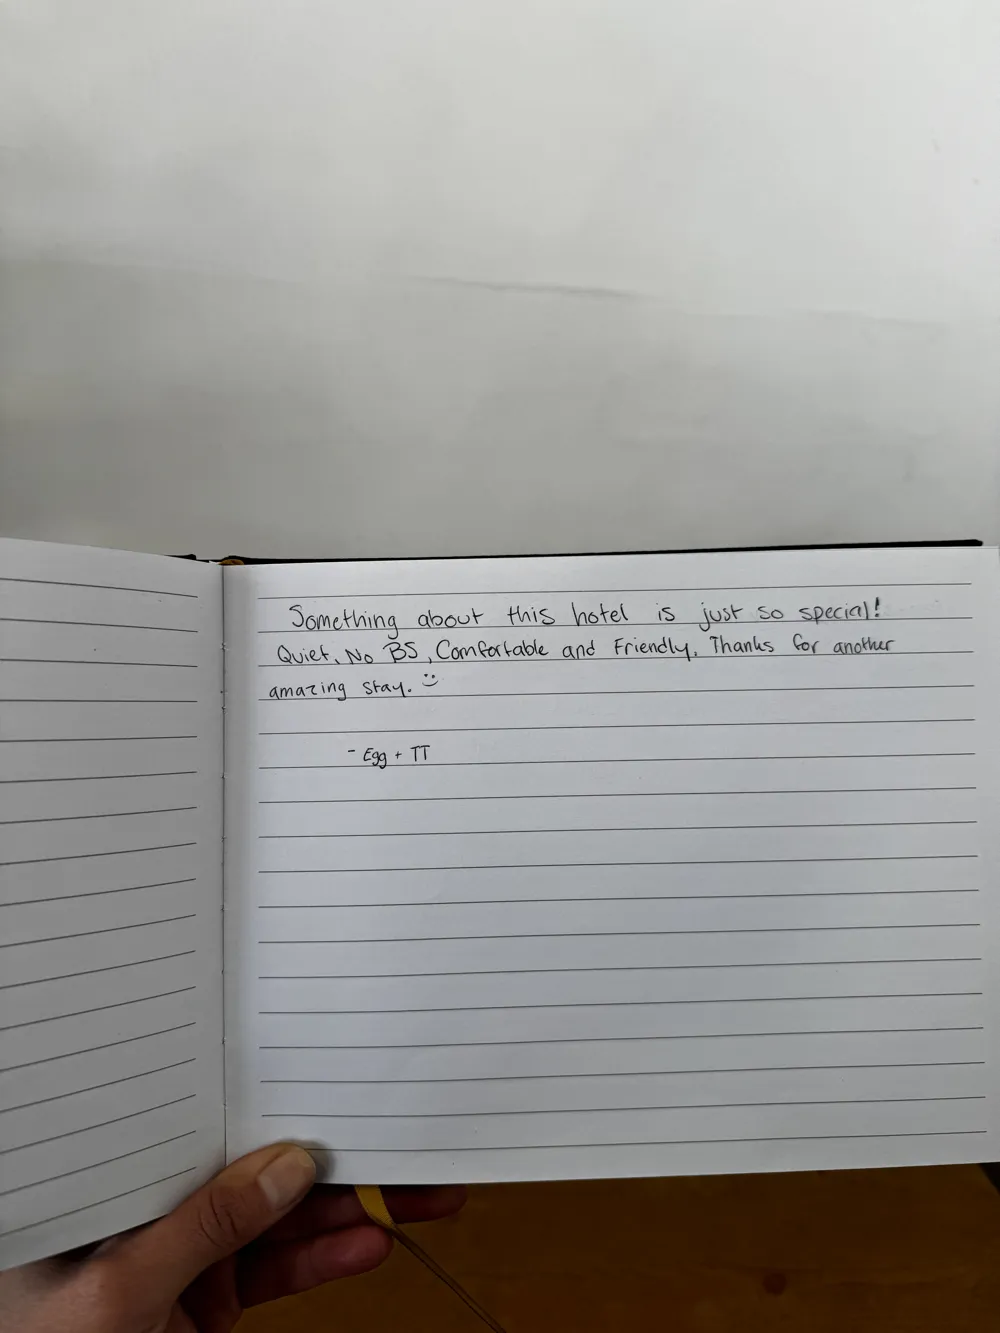 Something about this hotel is just so special!
Quiet, No BS, Comfortable and Friendly. Thanks for another
amazing stay. :)
- Egg + TT